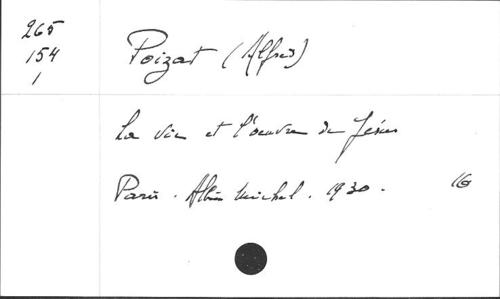 265
154
1
Poizat (Alfred)
La vie et l'oeuvre de Jésus
Paris. Albin Michel. 1930. 16